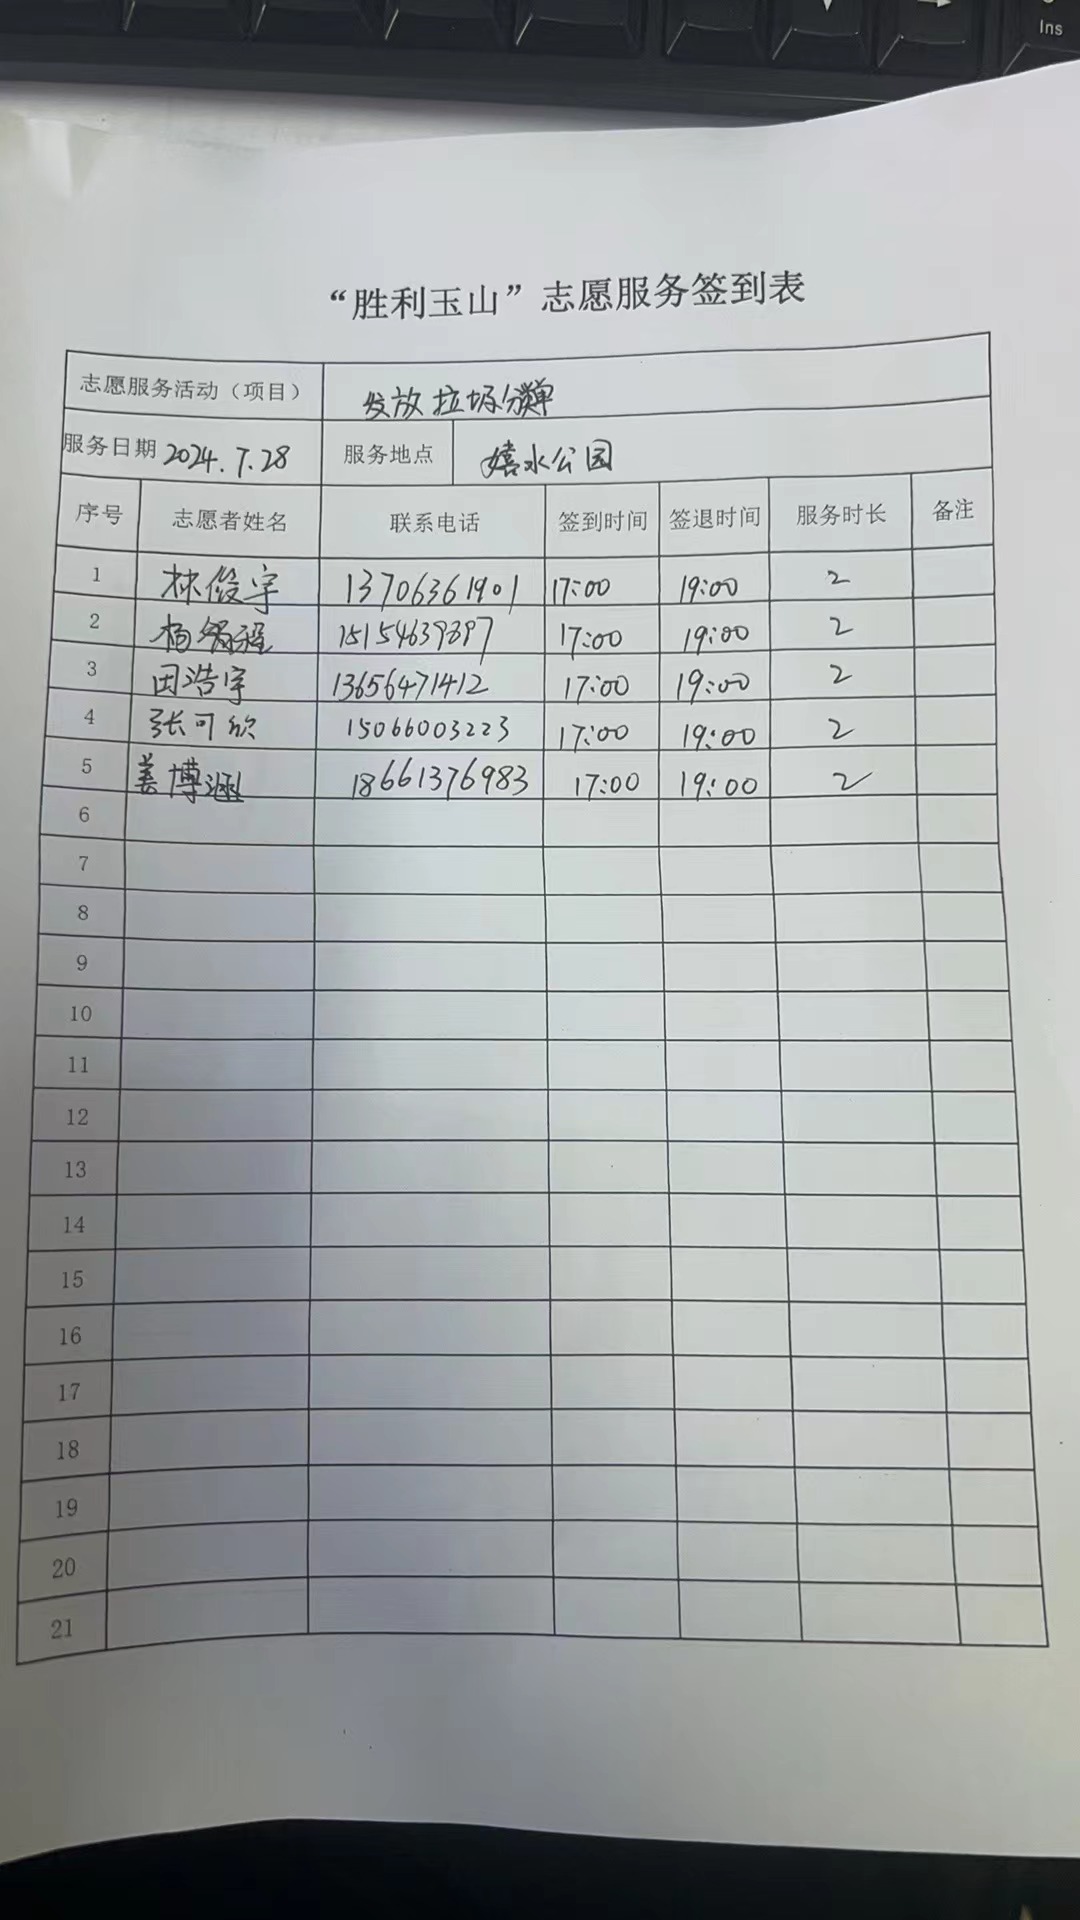 Ins
“胜利玉山”志愿服务签到表
志愿服务活动（项目） 发放垃圾分类单
服务日期 2024.7.28 服务地点 嬉水公园
序号 志愿者姓名 联系电话 签到时间 签退时间 服务时长 备注
1 林俊宇 13706361901 17:00 19:00 2
2 杨 程 15154639397 17:00 19:00 2
3 田浩宇 13656471412 17:00 19:00 2
4 张可欣 15066003223 17:00 19:00 2
5 姜博涵 18661376983 17:00 19:00 2
6
7
8
9
10
11
12
13
14
15
16
17
18
19
20
21